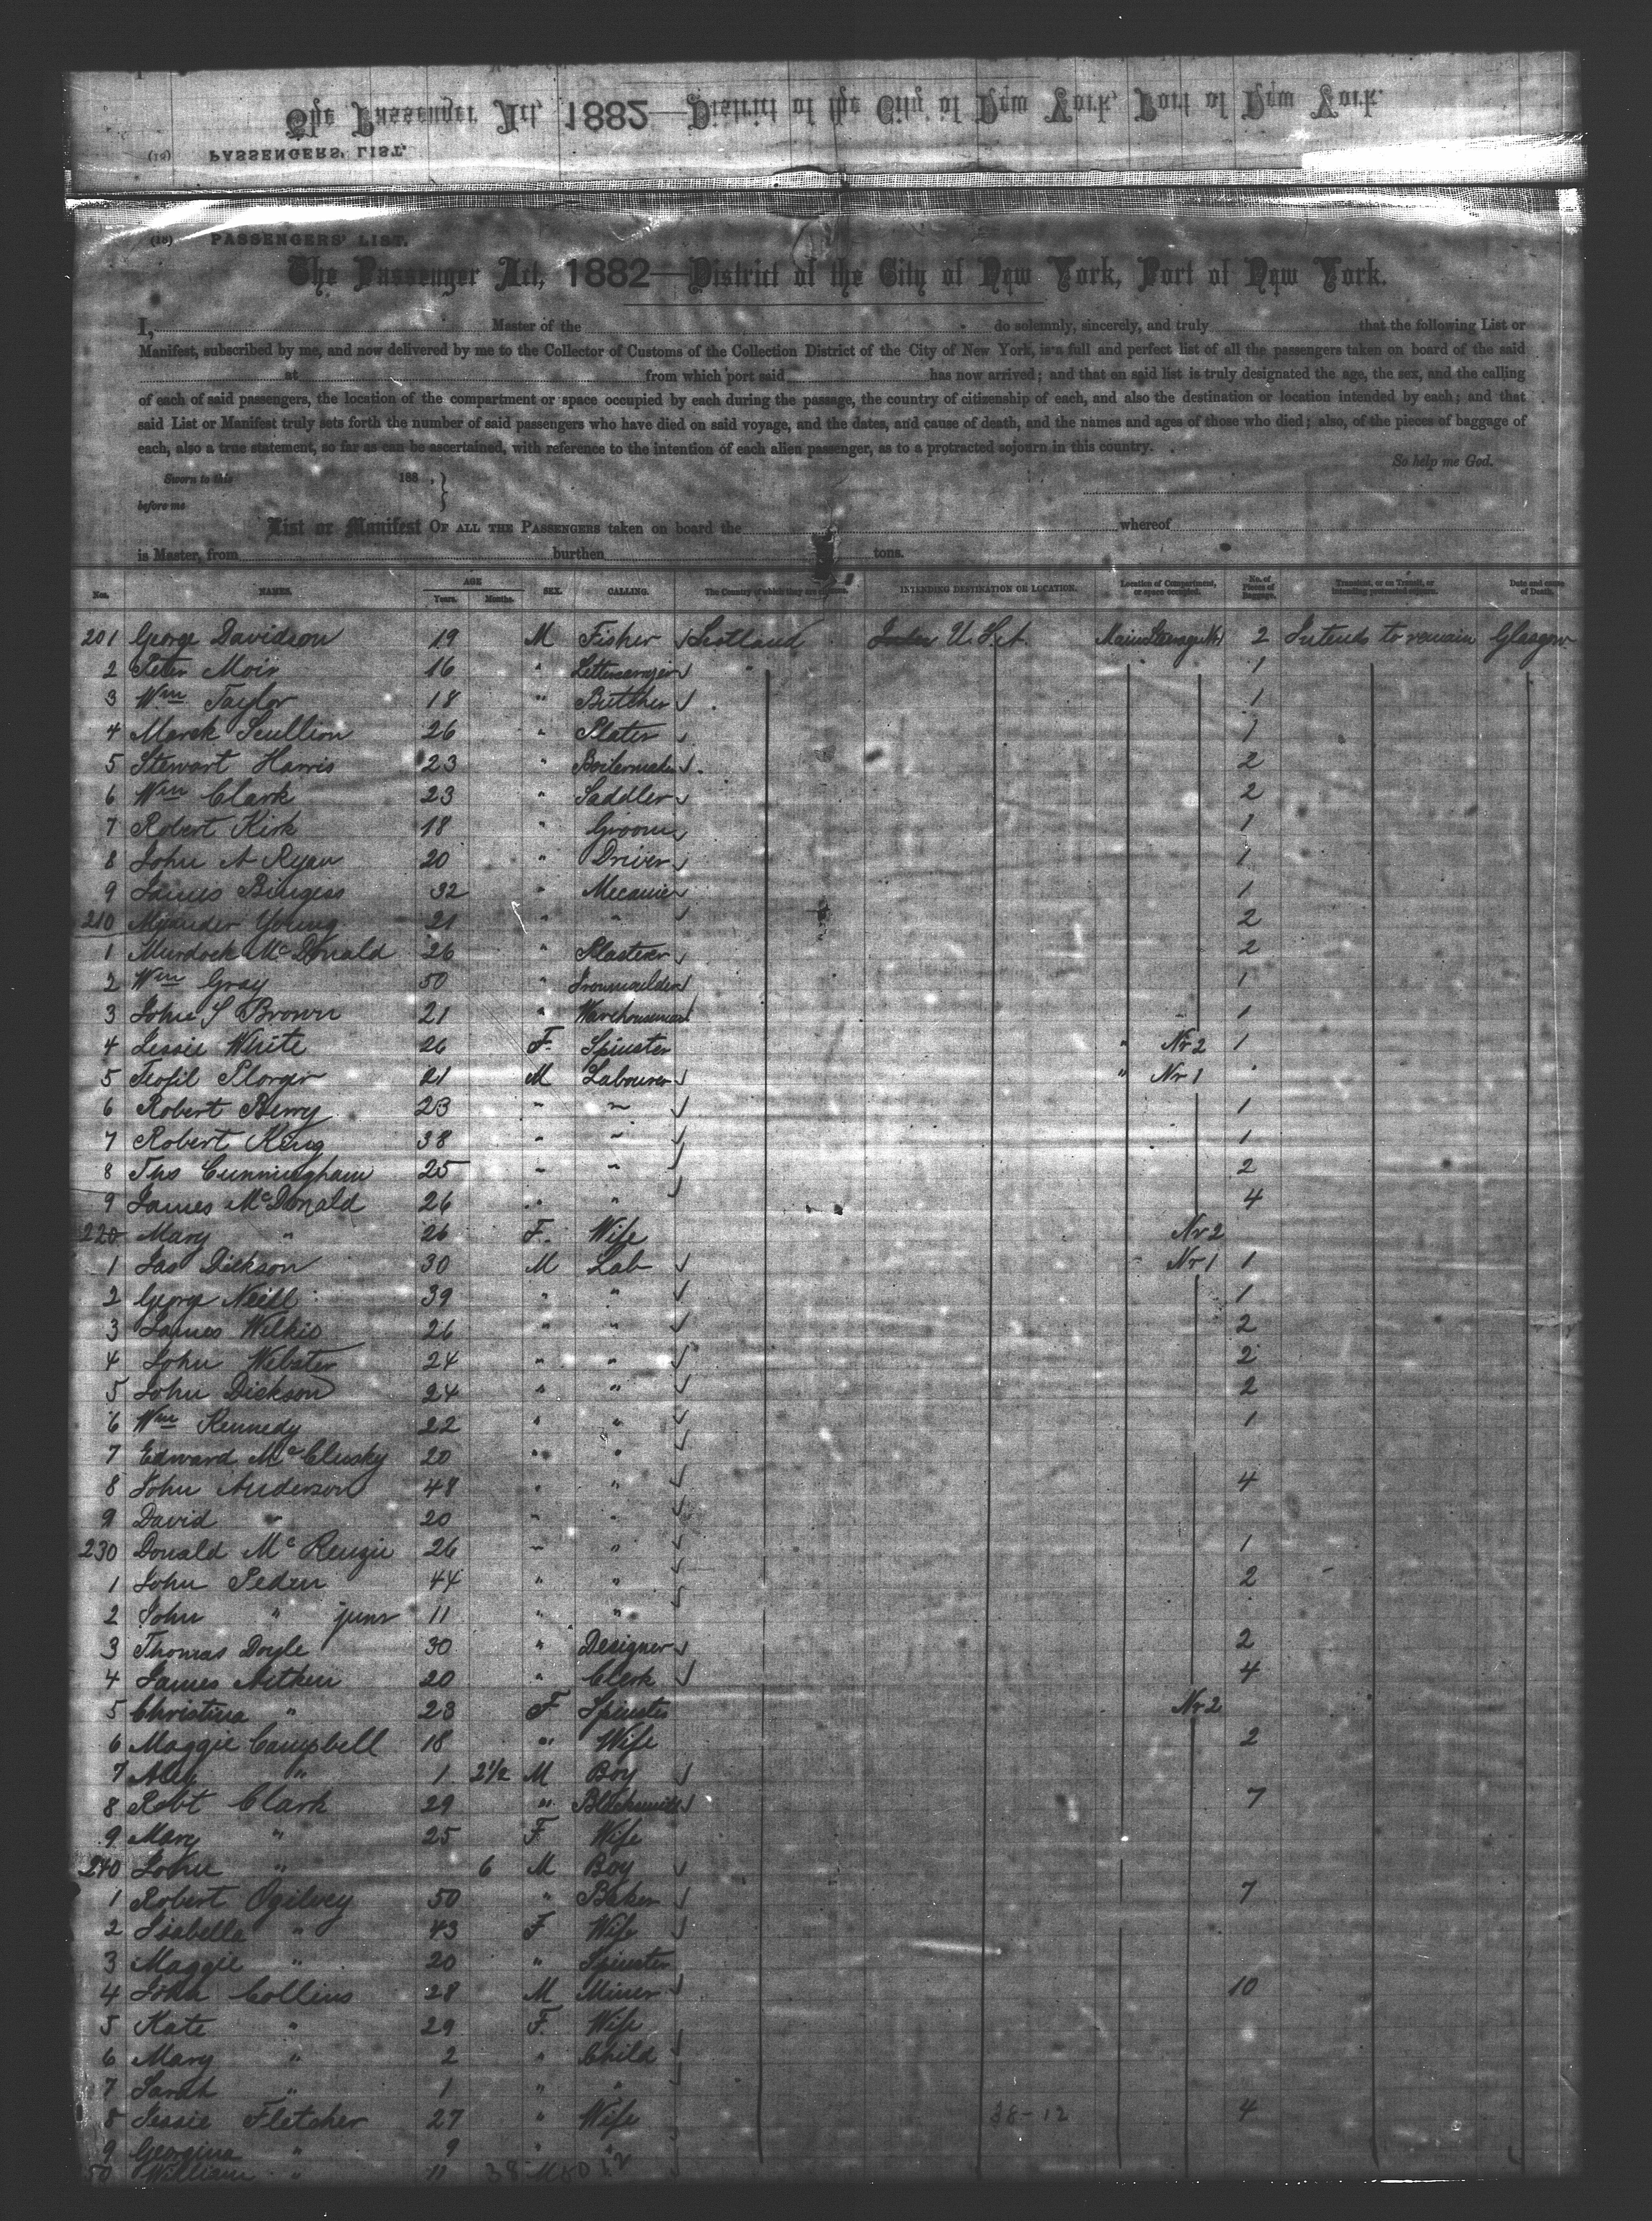 The Passenger Act, 1882—District of the City of New York, Port of New York.
PASSENGERS' LIST.
PASSENGERS' LIST.
The Passenger Act, 1882—District of the City of New York, Port of New York.
I, Master of the do solemnly, sincerely, and truly that the following List or
Manifest, subscribed by me, and now delivered by me to the Collector of Customs of the Collection District of the City of New York, is a full and perfect list of all the passengers taken on board of the said
at from which port said has now arrived; and that on said list is truly designated the age, the sex, and the calling
of each of said passengers, the location of the compartment or space occupied by each during the passage, the country of citizenship of each, and also the destination or location intended by each; and that
said List or Manifest truly sets forth the number of said passengers who have died on said voyage, and the dates, and cause of death, and the names and ages of those who died; also, of the pieces of baggage of
each, also a true statement, so far as can be ascertained, with reference to the intention of each alien passenger, as to a protracted sojourn in this country.
So help me God.
Sworn to this 188 .
before me
List or Manifest OF ALL THE PASSENGERS taken on board the whereof
is Master, from burthen tons.
Nos. NAMES. AGE Years. Months. SEX. CALLING. The Country of which they are citizens. INTENDING DESTINATION OR LOCATION. Location of Compartment, or space occupied. No. of Pieces of Baggage. Transient, or in Transit, or intending protracted sojourn. Date and cause of Death.
201 George Davidson 19 M Fisher Scotland U.S.A. Main Steerage Nr 1 2 Intends to remain Glasgow
2 Peter Moir 16 " 1
3 Wm Taylor 18 " Butcher 1
4 Mark Scullion 26 " Plater 1
5 Stewart Harris 23 " Boilermaker 2
6 Wm Clark 23 " Saddler 2
7 Robert Kirk 18 " Groom 1
8 John A Ryan 20 " Driver 1
9 James Burgess 32 " Mecanic 1
210 Young 21 " " 2
1 Murdock McDonald 26 " Plasterer 2
2 Wm Gray 50 " Ironmoulder 1
3 John S Brown 21 " Warehouseman 1
4 Jessie White 26 F. Spinster " Nr 2 1
5 21 M Labourer " Nr 1 "
6 Robert Berry 23 " " 1
7 Robert King 38 " " 1
8 Ths Cunningham 25 " " 2
9 James McDonald 26 " " 4
220 Mary " 26 F. Wife Nr 2
1 Jas Dickson 30 M Lab Nr 1 1
2 George Neill 39 " " 1
3 James Wilkie 26 " " 2
4 John Webster 24 " " 2
5 John Dickson 24 " " 2
6 Wm Kennedy 22 " " 1
7 Edward McClusky 20 " "
8 John Anderson 48 " " 4
9 David " 20 " "
230 Donald McKenzie 26 " " 1
1 John Peden 44 " " 2
2 John " junr 11 " "
3 Thomas Doyle 30 " Designer 2
4 James Aitken 20 " Clerk 4
5 Christina " 23 F Spinster Nr 2
6 Maggie Campbell 18 " Wife 2
7 Alex " 1 2½ M Boy
8 Robt Clark 29 " Blacksmith 7
9 Mary " 25 F Wife
240 John " 6 M Boy
1 Robert Ogilvey 50 " Baker 7
2 Isabella " 43 F Wife
3 Maggie " 20 " Spinster
4 John Collins 28 M Miner 10
5 Kate " 29 F. Wife
6 Mary " 2 " Child
7 Sarah " 1 " "
8 Jessie Fletcher 27 " Wife 38-12 4
9 Georgina " 9 " "
50 William " 11 M